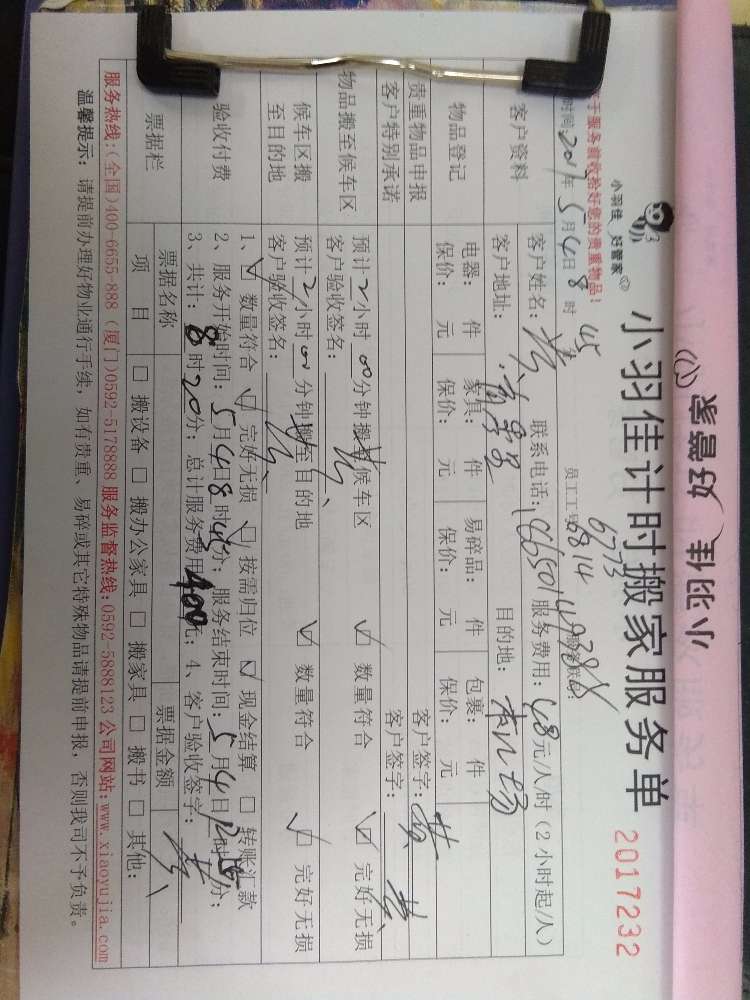 小羽佳 好管家
小羽佳 好管家
小羽佳计时搬家服务单
2017232
服务前收拾好您的贵重物品!
时间:2017年5月4日8时45
员工工号 6814
6773
客户资料
客户姓名: 黄 联系电话: 服务费用:48元/人/时(2小时起/人)
客户地址: 目的地:
物品登记
电器: 件 家具: 件 易碎品: 件 包裹: 件
保价: 元 保价: 元 保价: 元 保价: 元
贵重物品申报 客户签字: 黄
客户特别承诺 客户签字: 黄
物品搬至候车区
预计2小时00分钟搬至候车区 ☑ 数量符合 ☑ 完好无损
客户验收签名:
候车区搬至目的地
预计2小时00分钟搬至目的地 ☑ 数量符合 ☑ 完好无损
客户验收签名:
验收付费
1、☑ 数量符合 ☑ 完好无损 ☑ 按需归位 ☑ 现金结算 □ 转账汇款
2、服务开始时间:5月4日8时45分; 服务结束时间:5月4日 时 分;
3、共计:8时20分; 总计服务费用:400元; 4、客户验收签字: 黄
票据栏
票据名称 票据金额
项目 □ 搬设备 □ 搬办公家具 □ 搬家具 □ 搬书 □ 其他:
服务热线:(全国)400-6655-888 (厦门)0592-5178888 服务监督热线:0592-5888123 公司网站:www.xiaoyujia.com
温馨提示: 请提前办理好物业通行手续,如有贵重、易碎或其它特殊物品请提前申报,否则我司不予负责。